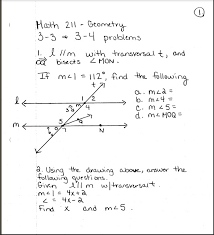 ①
Math 211 - Geometry
3-3 + 3-4 problems
1. l // m with transversal t, and
OQ bisects ∠MON.
If m∠1 = 112°, find the following
a. m∠2 =
b. m∠4 =
c. m∠5 =
d. m∠MOQ =
l
1 2
3 M 4
m
5
7
N
2. Using the drawing above, answer the
following questions.
Given l // m w/transversal t.
m∠1 = 4x+2
∠ = 4x-2
Find x and m∠5.